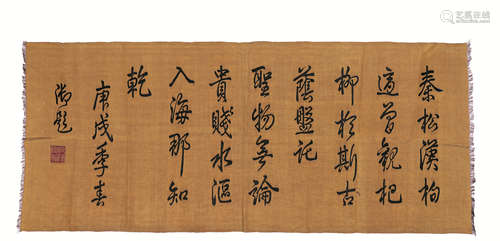 秦松漢柏
適曾觀杞
柳於斯古
蔭盤託
聖物無論
貴賤水漚
入海那知
乾
庚戌季春
御題
艺狐在线